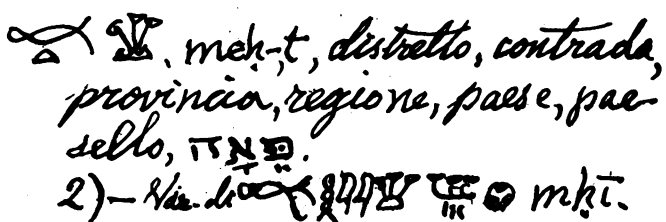 meḥ-t, distretto, contrada,
provincia, regione, paese, pae-
sello, פֵּאָה.
2) – Var. di mḥt.